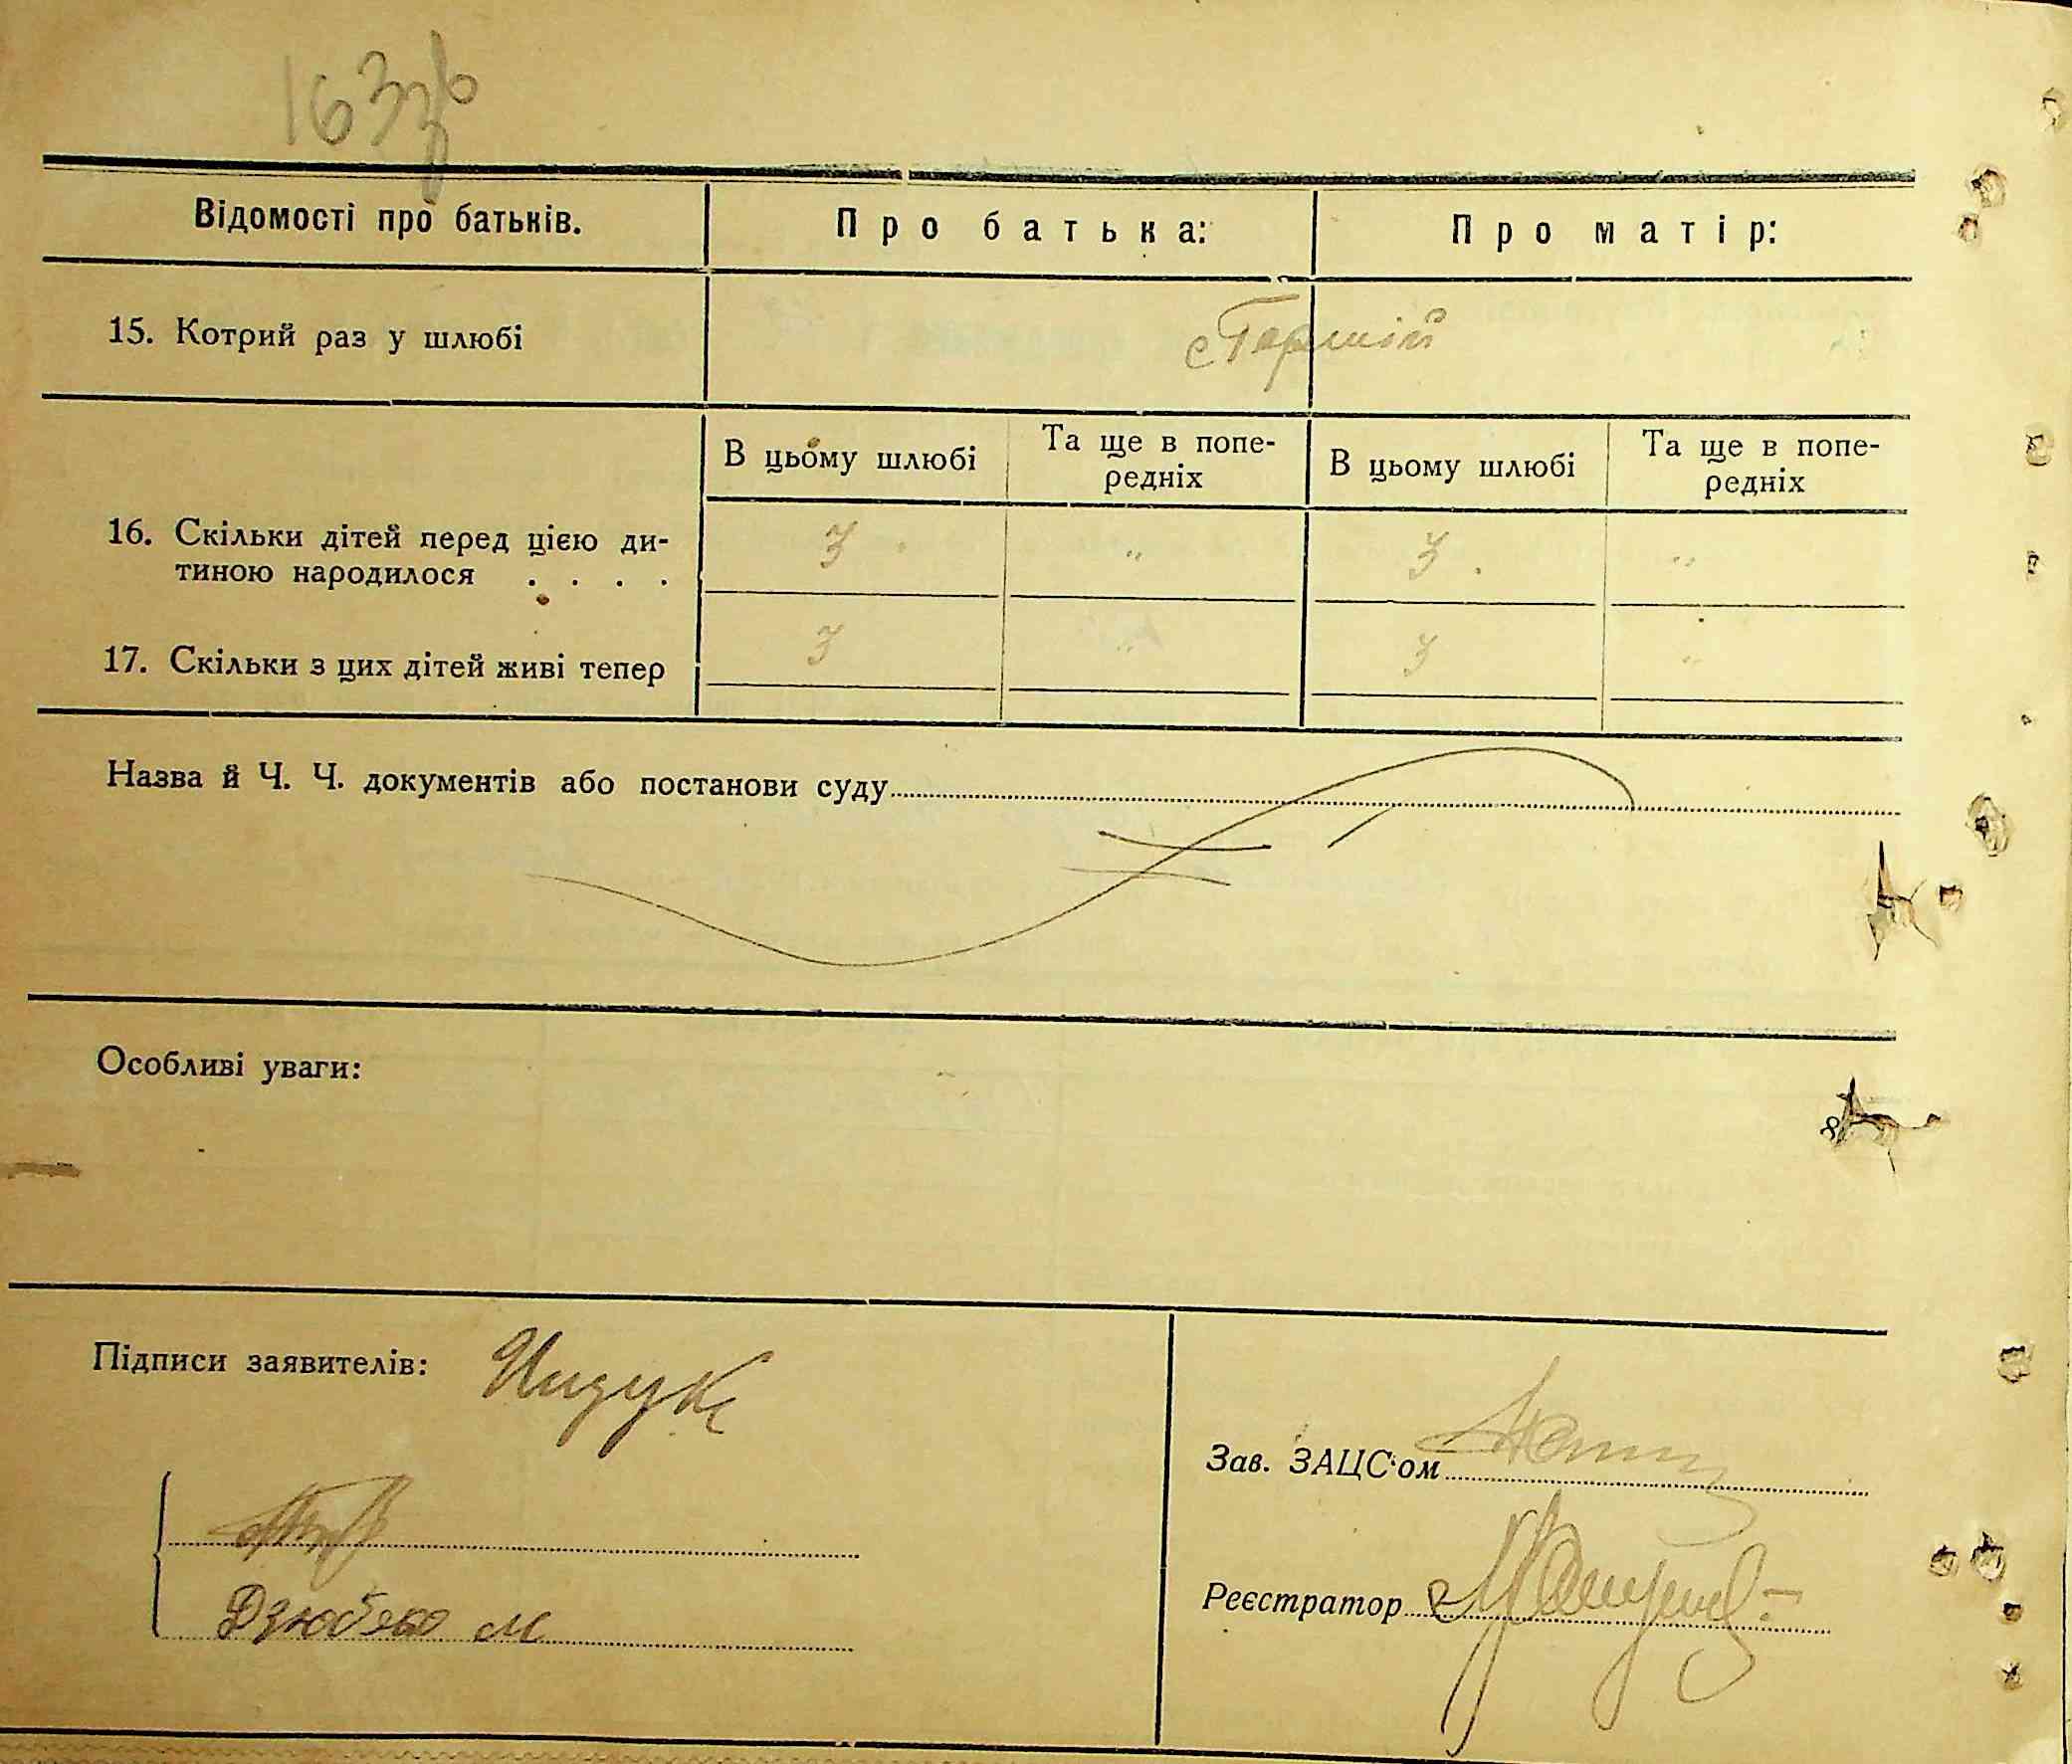 163зв
Відомості про батьків. Про батька: Про матір:
15. Котрий раз у шлюбі Перший
В цьому шлюбі Та ще в попе- В цьому шлюбі Та ще в попе-
редніх редніх
16. Скільки дітей перед цією ди- 3 " 3. "
тиною народилося . . . .
17. Скільки з цих дітей живі тепер 3 " 3 "
Назва й Ч. Ч. документів або постанови суду
Особливі уваги:
Підписи заявителів:
Зав. ЗАЦС'ом
Дзюбко М
Реєстратор